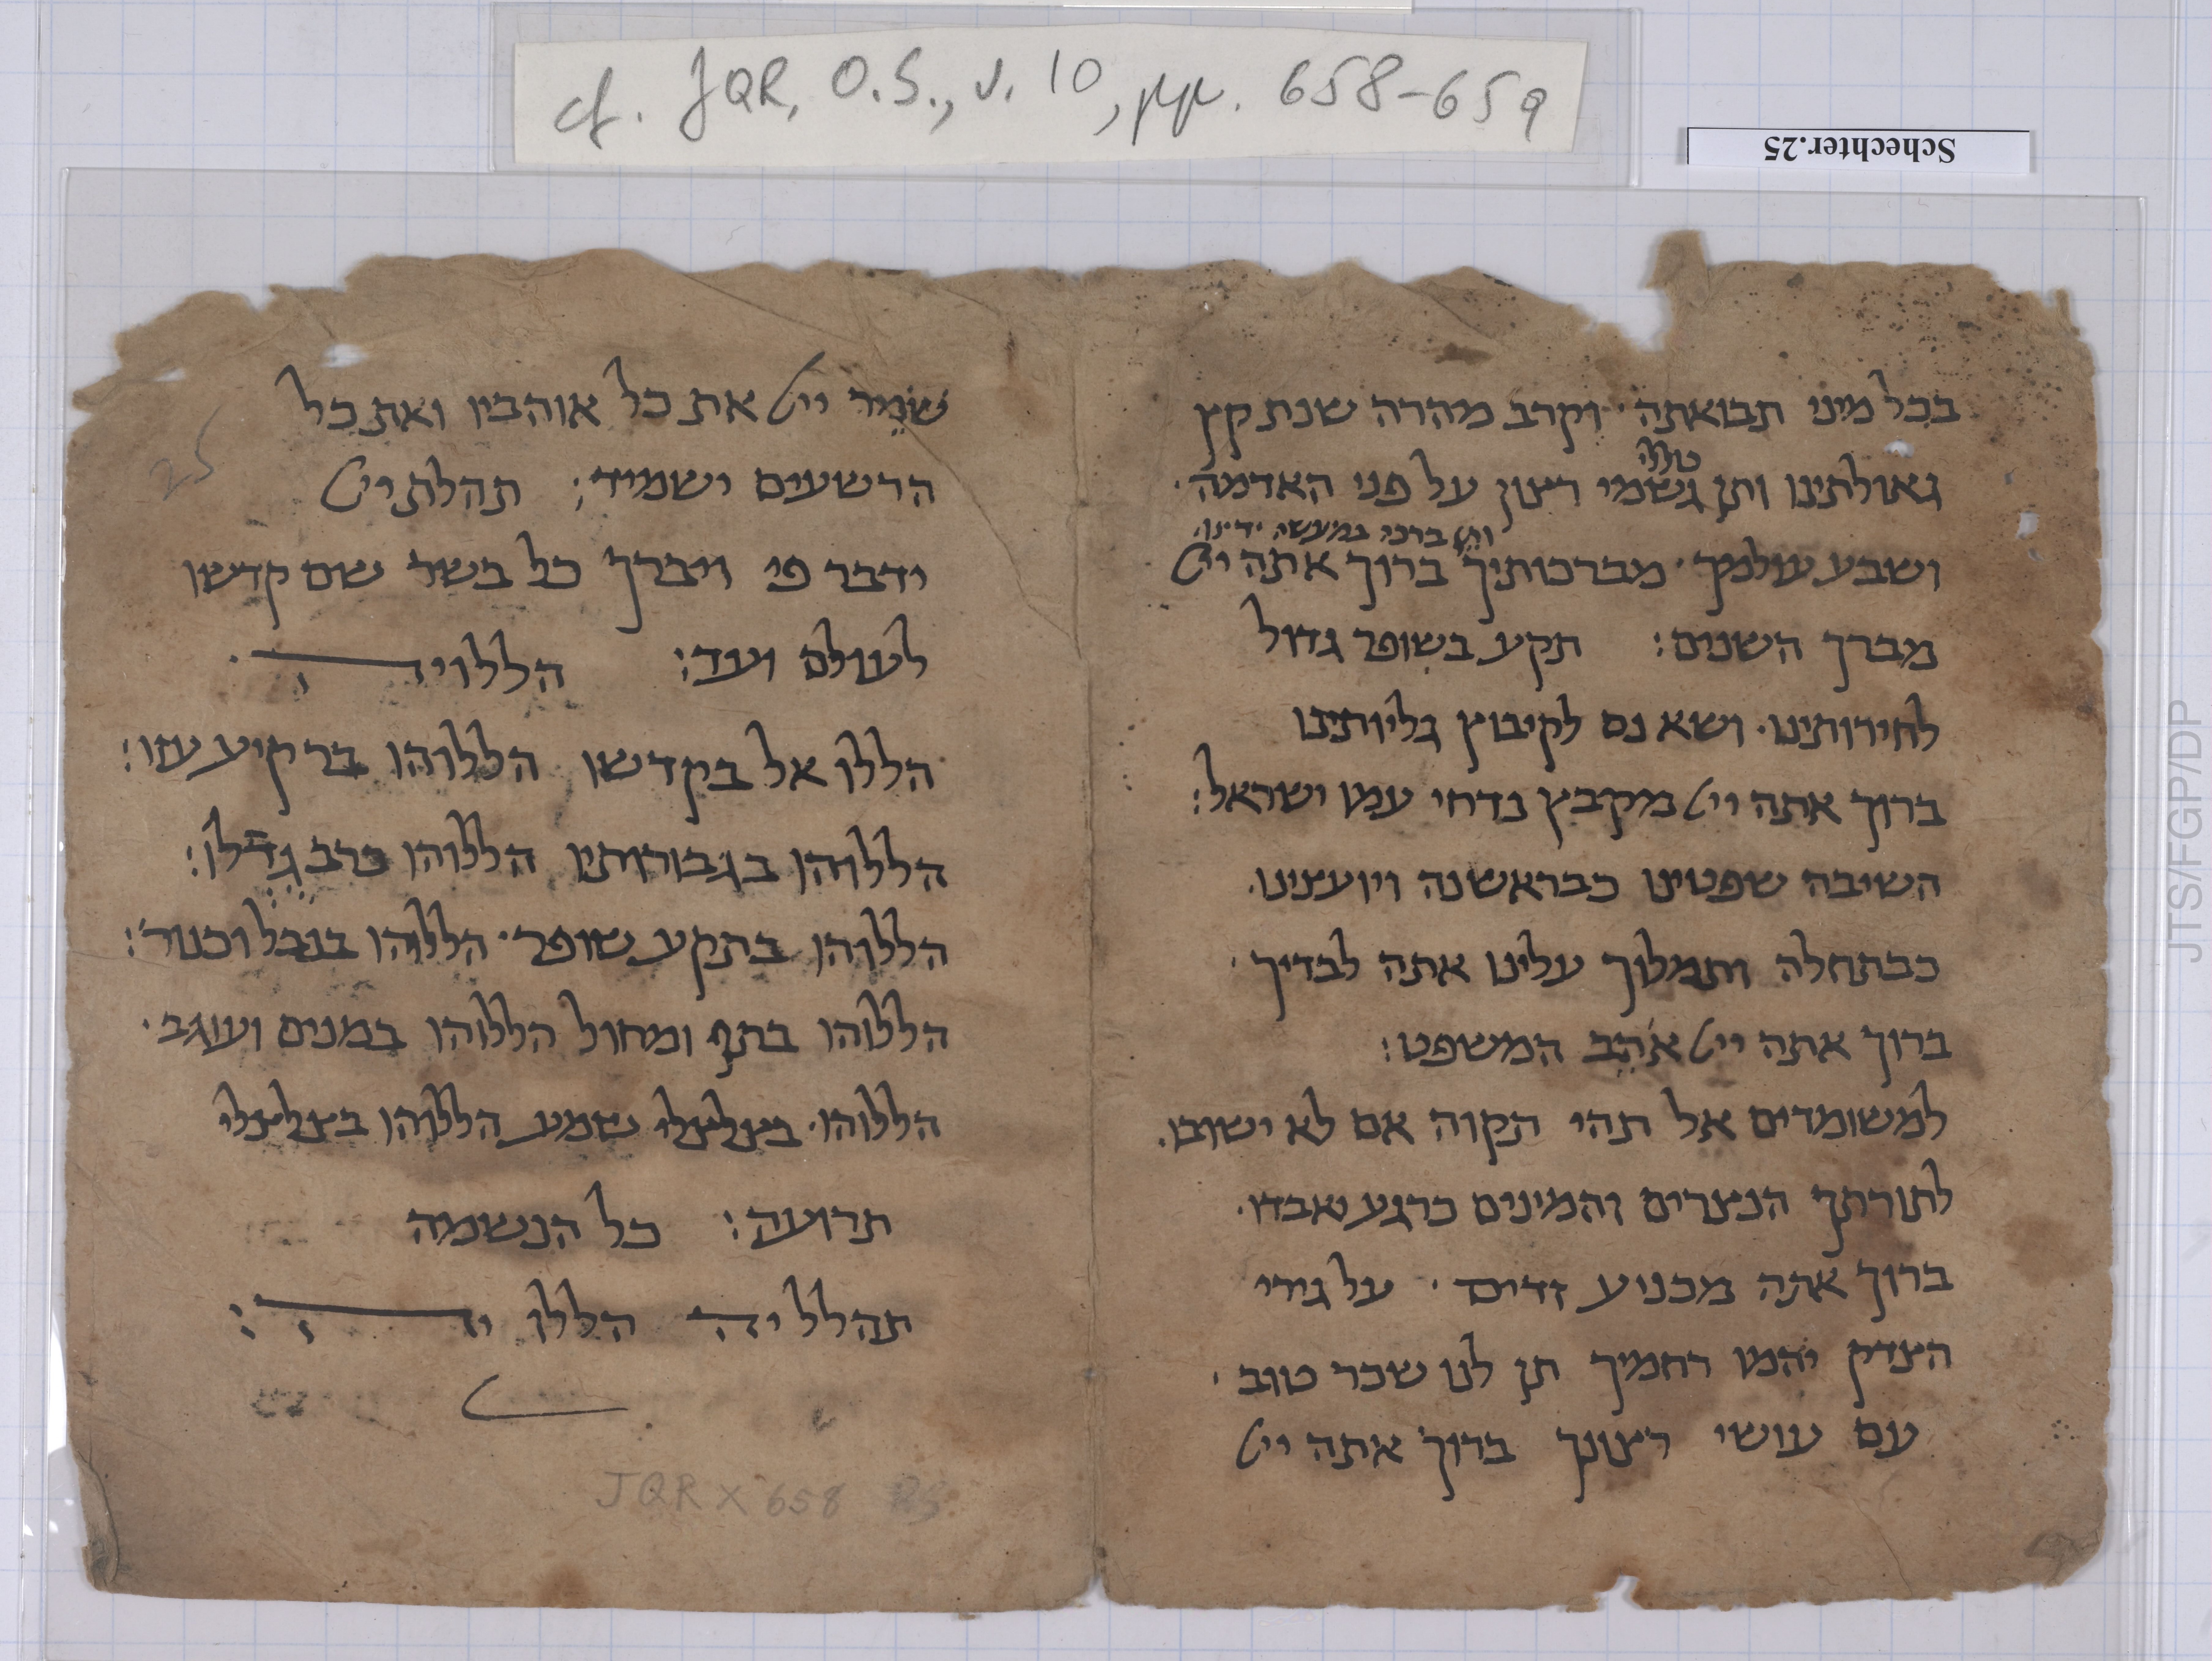 cf. JQR, O.S., v. 10, pp. 658-659
Schechter.25
בכל מיני תבואתה· וקרב מהרה שנת קץ
טללי
גאולתינו ותן גשמי רצון על פני האדמה·
ותן ברכה במעשה ידינו
ושבע עולמך· מברכותיך ברוך אתה ייי
מברך השנים: תקע בשופר גדול
לחירותינו· ושא נס לקיבוץ גליותינו
ברוך אתה ייי מקבץ נדחי עמו ישראל:
השיבה שפטינו כבראשנה ויועצינו·
כבתחלה ותמלוך עלינו אתה לבדיך·
ברוך אתה ייי אהב המשפט:
למשומדים אל תהי תקוה אם לא ישובו·
לתורתך הנצרים והמינים כרגע יאבדו·
ברוך אתה מכניע זדים· על גירי
הצדק יהמו רחמיך תן לנו שכר טוב·
עם עושי רצונך ברוך אתה ייי
25
שֹמֵר ייי את כל אוהביו ואת כל
הרשעים ישמיד: תהלת ייי
ידבר פי ויברך כל בשר שם קדשו
לעולם ועד: הללויה·
הללו אל בקדשו הללוהו ברקיע עזו:
הללוהו בגבורותיו הללוהו כרב גדלו:
הללוהו בתקע שופר· הללוהו בנבל וכנור:
הללוהו בתף ומחול הללוהו במנים ועוגב·
הללוהו· בצלצלי שמע הללוהו בצלצלי
תרועה: כל הנשמה
תהלל יה הללו יה:
JQR X 658
JTS/FGP/DP